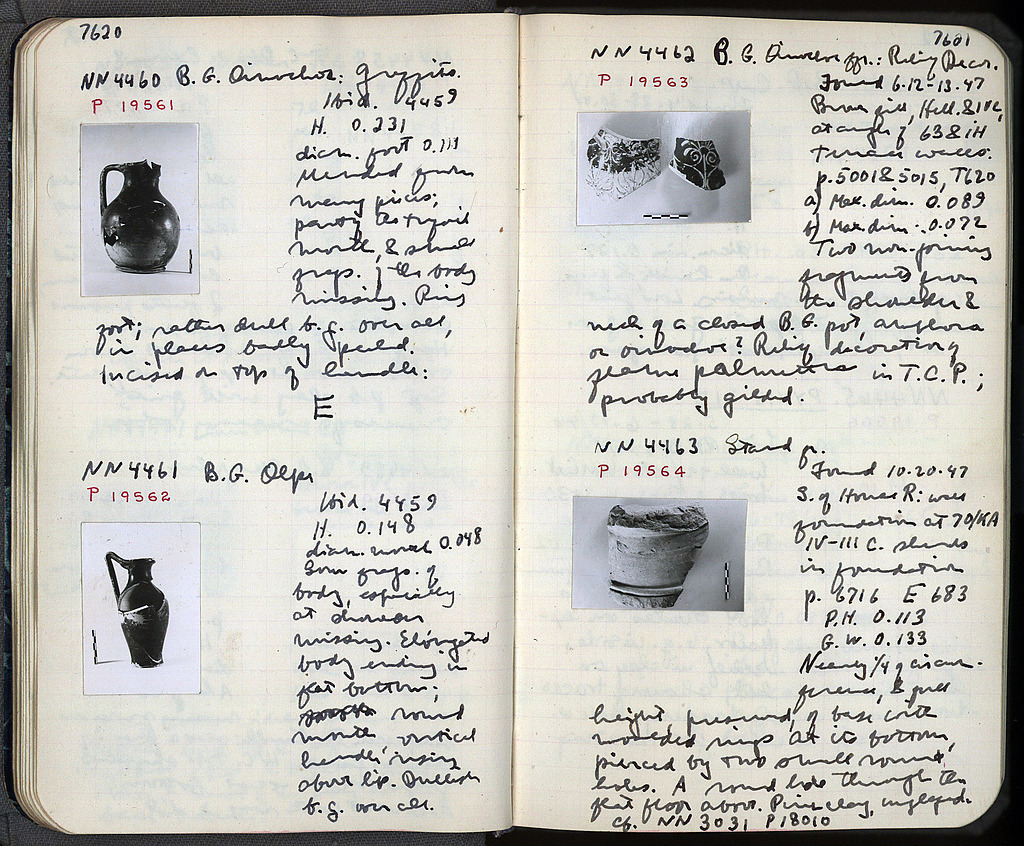 7620
NN 4460 B. G. Oinochoe: Graffito.
P 19561
Ibid. 4459
H. 0.231
diam. foot 0.111
Mended from
many pieces;
part, the trefoil
mouth, & small
frags. of the body
missing. Ring
foot; rather dull b. g. over all,
in places badly peeled.
Incised on top of handle:
E
NN 4461 B.G. Olpe
P 19562
Ibid. 4459
H. 0.148
diam. mouth 0.048
Some frags. of
body, especially
at shoulder
missing. Elongated
body ending in
flat bottom;
round
mouth, vertical
handle, rising
above lip. Dullish
b. g. over all.
7621
NN 4462 B. G. Oinochoe fr.: Relief Decor.
P 19563
Found 6-12-13-47
Brown fill, Hell. &
at angle of 63 & iH
Terrace walls.
p. 5001 & 5015,
a) Max. dim. 0.089
b) Max. dim. 0.072
Two non-joining
fragments from
the shoulder &
neck of a closed B. G. pot, amphora
or oinochoe? Relief decoration of
palmettes in T.C.P.;
probably gilded.
NN 4463 Stand fr.
P 19564
Found 10-20-47
S. of House R: wall
foundation at 70/KA
IV-III C. sherds
in foundation
p. 6716 E 683
P.H. 0.113
G. W. 0.133
Nearly 1/4 of circum-
ference, & full
height preserved, of base with
moulded rings at its bottom,
pierced by two small round
holes. A round hole through the
flat floor above. Pink clay, unglazed.
cf. NN 3031 P 18010